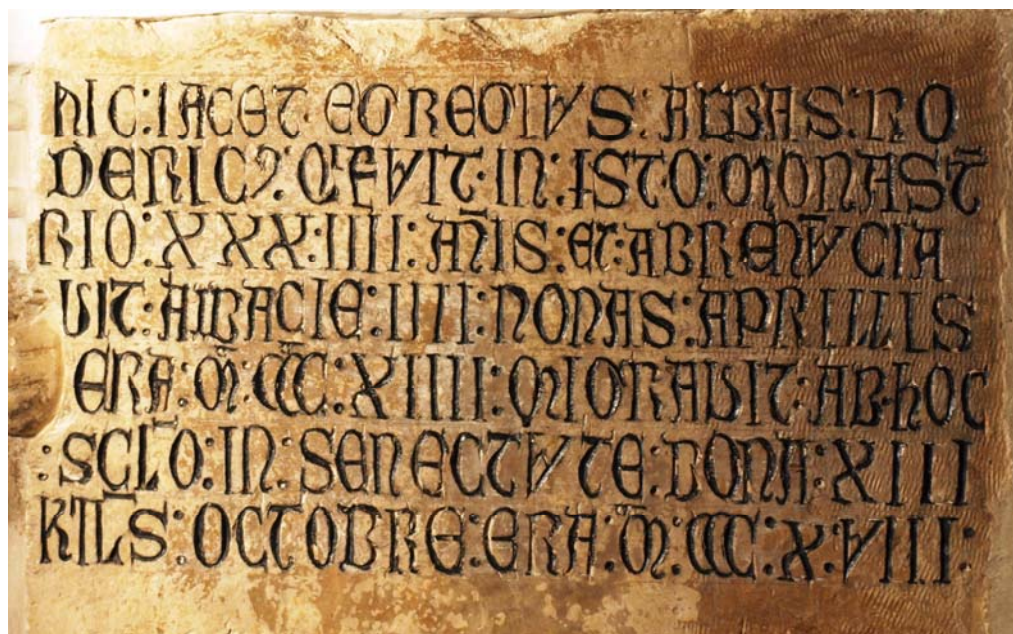 HIC:IACET·EGREGIVS:ABBAS:RO
DERICꝰ:Q'FVIT·IN:ISTO:MONAST̄
RIO:XXX:IIII:AN̄IS:ET:ABRENV̄CIA
UIT:ABBACIE:IIII:NONAS:APRILIS
ERA:M̊:CCC:XIIII:MIGRAUIT·AB·HOC
:SCL̄O:IN:SENECTVTE:BONA:XIII
KL̄S:OCTOBRE:ERA:M̊:CCC:X:VIII: